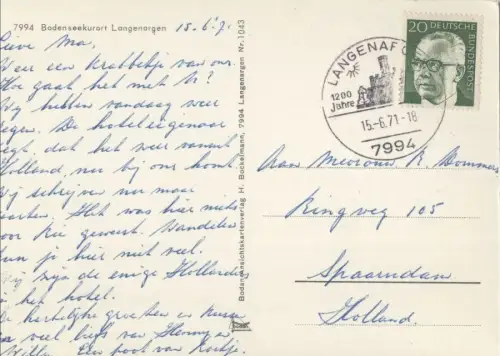 7994 Bodenseekurort Langenargen 15.6.7.
Lieve Ma.
Weer een krabbeltje van ons.
Hoe gaat het met U?
Wij hebben vandaag weer
regen. De hoteleigenaar
zegt, dat het weer vanuit
Holland, naar bij ons komt.
Wij schrijven nu maar
kaarten. Het was hier niets
voor geweest. Wandelen
kun je hier niet veel.
Wij zijn de enige Hollanders
in het hotel.
De hartelijke groeten en kussen
en veel liefs van Henny en
Willy. Een poot van
Bodanansichtskartenverlag H. Bockelmann, 7994 Langenargen Nr. 1043
LANGENARG
1200
Jahre
15.-6.71-18
7994
20 DEUTSCHE
BUNDESPOST
Aan Mevrouw R. Dommers
Ringweg 105
Spaarndam
Holland.